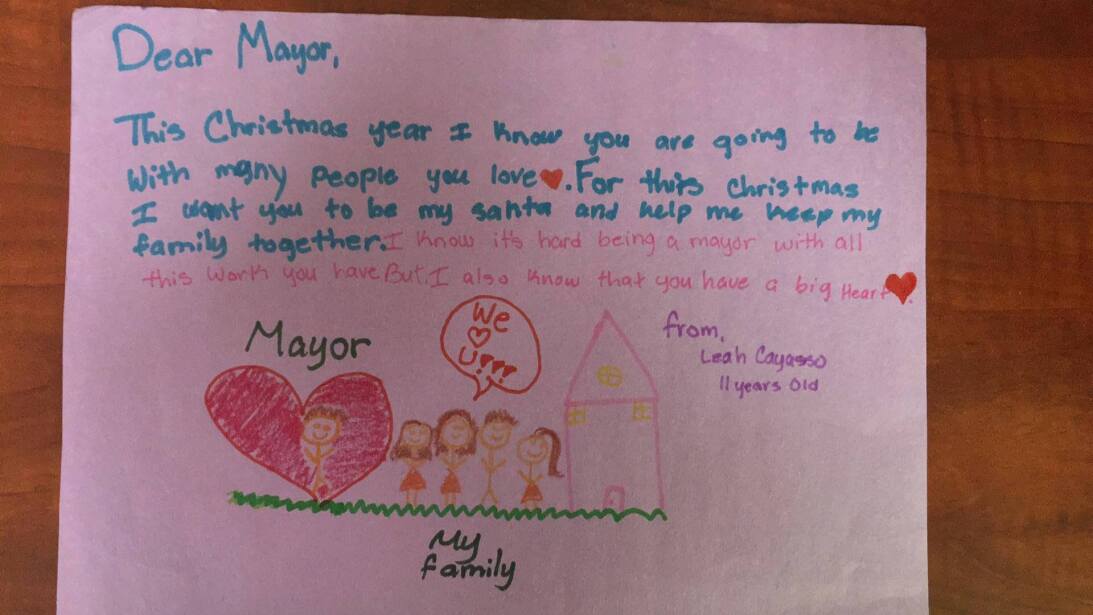 Dear Mayor,
This Christmas year I know you are going to be
with many people you love❤.For this christmas
I want you to be my santa and help me keep my
family together.I know it's hard being a mayor with all
this work you have But,I also know that you have a big Heart❤.
Mayor
We
♡
U!!!!
from,
Leah Cayasso
11 years old
My
family